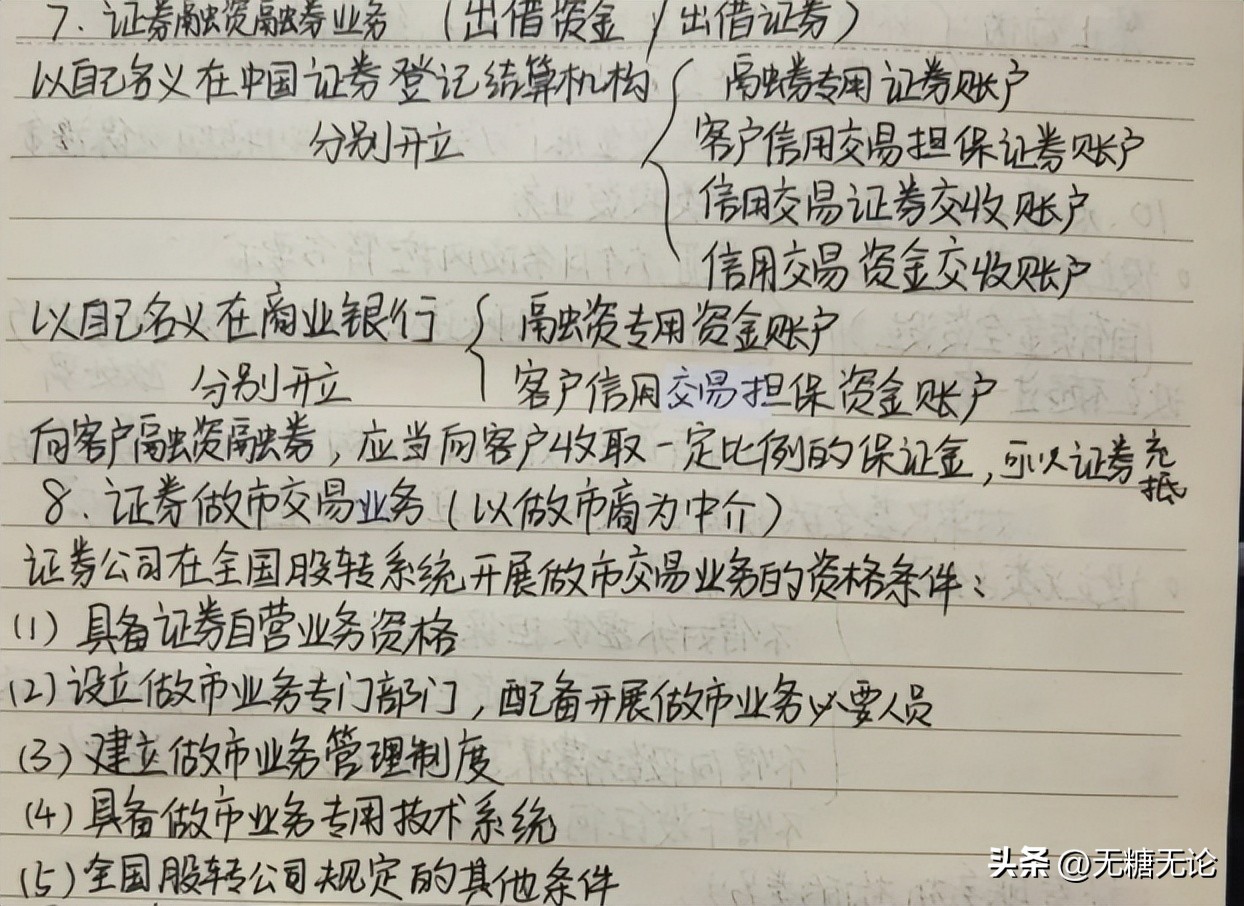 7. 证券融资融券业务 (出借资金 / 出借证券)
以自己名义在中国证券登记结算机构 { 融券专用证券账户
分别开立 客户信用交易担保证券账户
信用交易证券交收账户
信用交易资金交收账户
以自己名义在商业银行 { 融资专用资金账户
分别开立 客户信用交易担保资金账户
向客户融资融券,应当向客户收取一定比例的保证金,可以证券充抵
8. 证券做市交易业务(以做市商为中介)
证券公司在全国股转系统开展做市交易业务的资格条件:
(1) 具备证券自营业务资格
(2) 设立做市业务专门部门,配备开展做市业务必要人员
(3) 建立做市业务管理制度
(4) 具备做市业务专用技术系统
(5) 全国股转公司规定的其他条件
头条 @无糖无论